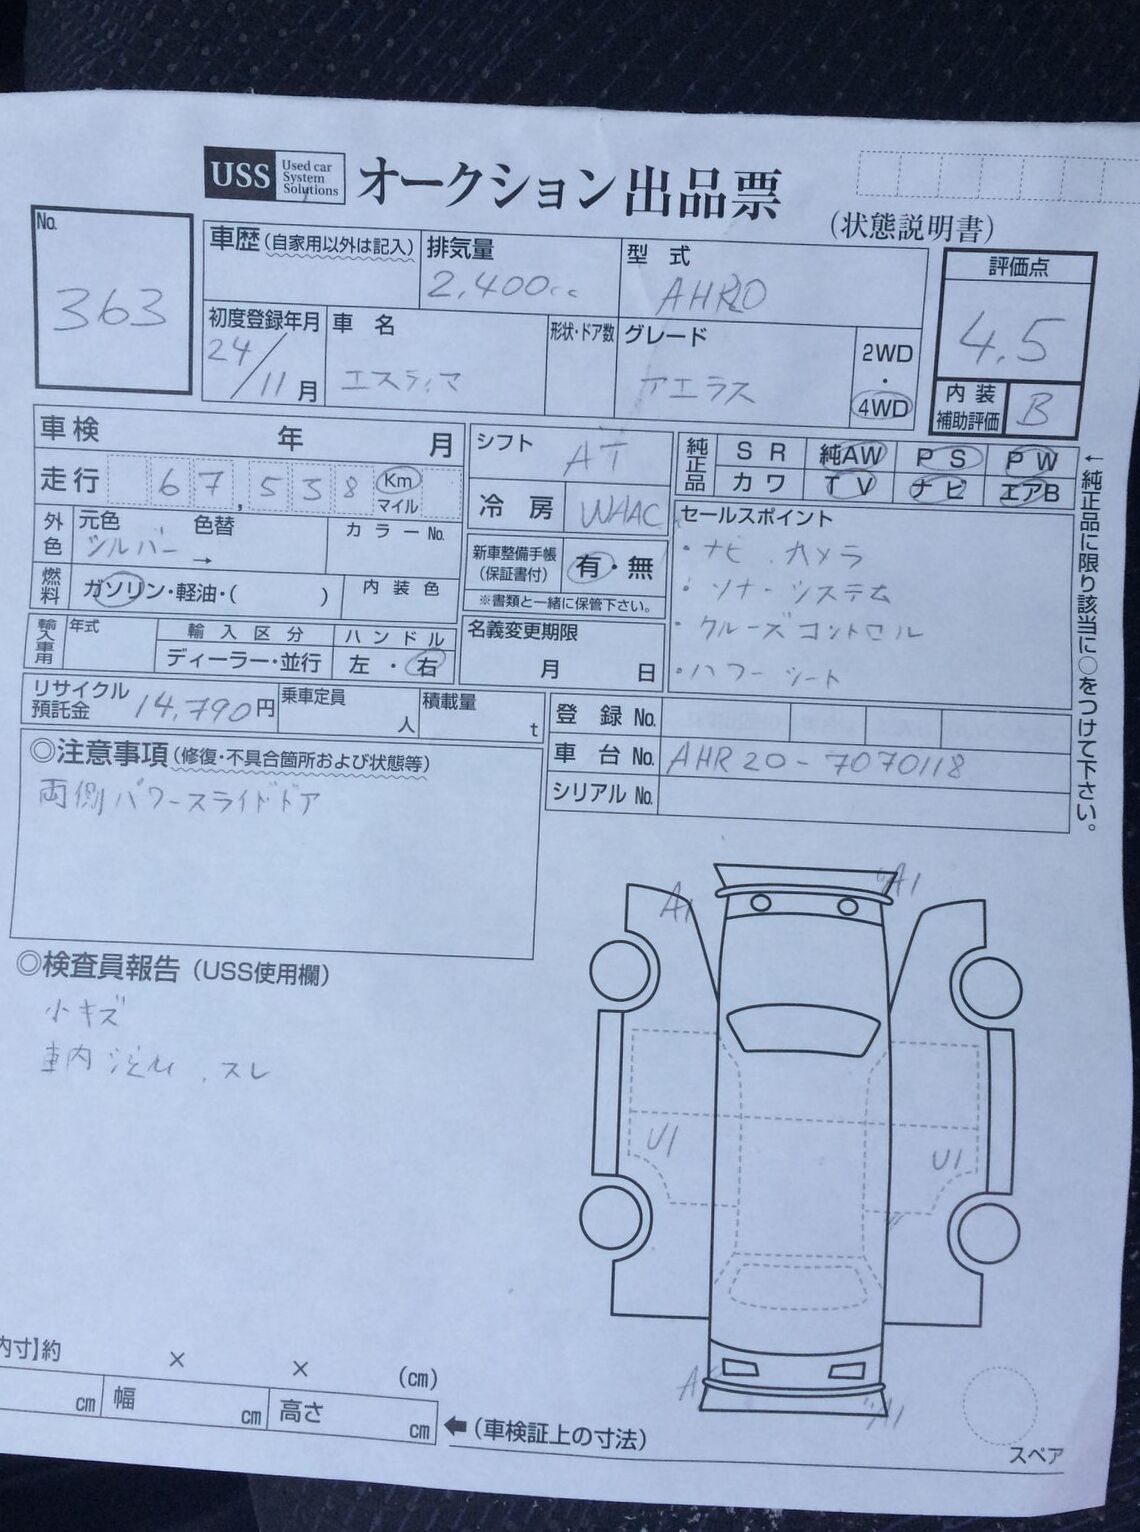 USS Used car System Solutions オークション出品票
(状態説明書)
No.
363
車歴(自家用以外は記入)
排気量
2,400cc
型式
AHR20
評価点
4.5
内装補助評価
B
初度登録年月
24/11月
車名
エスティマ
形状・ドア数
グレード
アエラス
2WD・4WD
車検 年 月
シフト
AT
純正品 SR 純AW PS PW
カワ TV ナビ エアB
走行 67,538 Km マイル
冷房
WAAC
外色 元色 色替 カラーNo.
シルバー →
新車整備手帳(保証書付) 有・無
※書類と一緒に保管下さい。
セールスポイント
・ナビ.カメラ
・ソナーシステム
・クルーズコントロル
・ハワーシート
燃料 ガソリン・軽油・( )
内装色
輸入車用 年式 輸入区分 ハンドル
ディーラー・並行 左・右
名義変更期限
月 日
リサイクル預託金 14,790円
乗車定員 人
積載量 t
登録No.
車台No. AHR20-7070118
シリアルNo.
←純正品に限り該当に○をつけて下さい。
◎注意事項(修復・不具合箇所および状態等)
両側パワースライドドア
◎検査員報告(USS使用欄)
小キズ
車内 .スレ
A1 A1
U1 U1
A
内寸】約 × × (cm)
cm 幅 cm 高さ cm ←(車検証上の寸法)
スペア